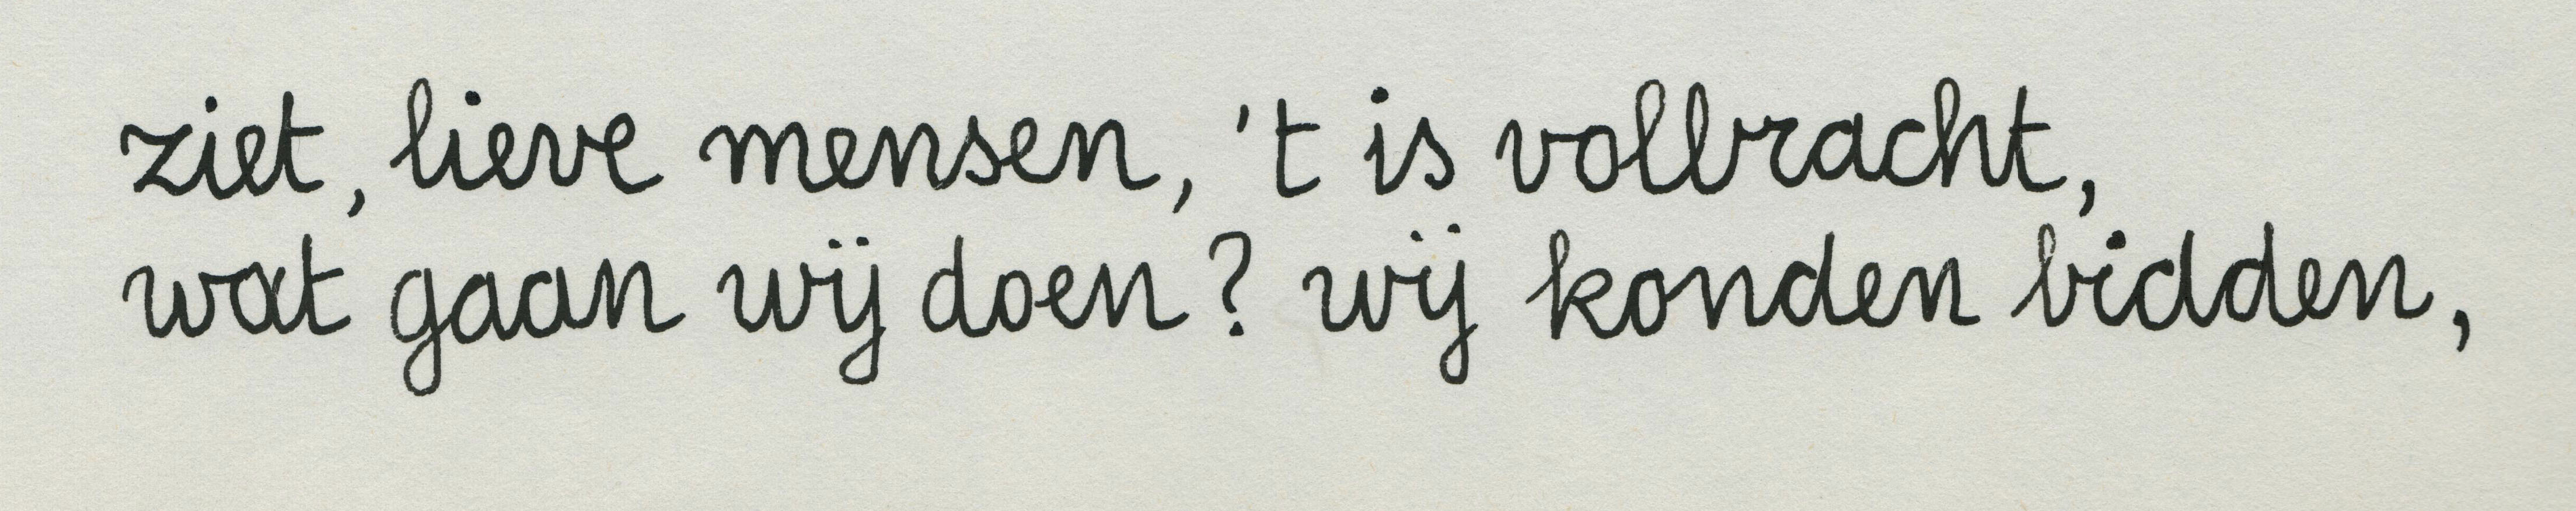 ziet, lieve mensen, 't is volbracht,
wat gaan wij doen? wij konden bidden,